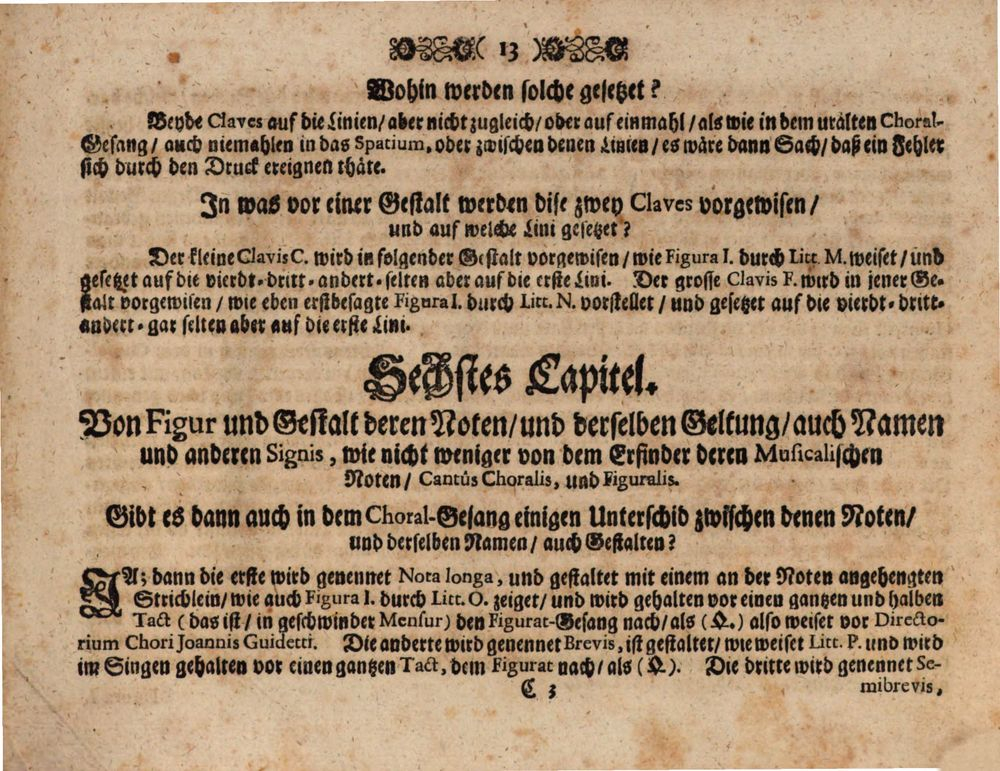 ( 13 )
Wohin werden solche gesetzet?
Beyde Claves auf die Linien/ aber nicht zugleich/ oder auf einmahl/ als wie in dem uralten Choral-
Gesang/ auch niemahlen in das Spatium, oder zwischen denen Linien/ es wäre dann Sach/ daß ein Fehler
sich durch den Druck ereignen thäte.
In was vor einer Gestalt werden dise zwey Claves vorgewisen/
und auf welche Lini gesetzet?
Der kleine Clavis C. wird in folgender Gestalt vorgewisen/ wie Figura I. durch Litt. M. weiset/ und
gesetzet auf die vierdt- dritt- andert- selten aber auf die erste Lini. Der grosse Clavis F. wird in jener Ge-
stalt vorgewisen/ wie eben erstbesagte Figura I. durch Litt. N. vorstellet/ und gesetzet auf die vierdt- dritt-
andert- gar selten aber auf die erste Lini.
Sechstes Capitel.
Von Figur und Gestalt deren Noten/ und derselben Geltung/ auch Namen
und anderen Signis, wie nicht weniger von dem Erfinder deren Musicalischen
Noten/ Cantûs Choralis, und Figuralis.
Gibt es dann auch in dem Choral-Gesang einigen Unterschid zwischen denen Noten/
und derselben Namen/ auch Gestalten?
JA; dann die erste wird genennet Nota longa, und gestaltet mit einem an der Noten angehengten
Strichlein/ wie auch Figura I. durch Litt. O. zeiget/ und wird gehalten vor einen gantzen und halben
Tact (das ist/ in geschwinder Mensur) den Figurat-Gesang nach/ als ( .) also weiset vor Directo-
rium Chori Joannis Guidetti. Die anderte wird genennet Brevis, ist gestaltet/ wie weiset Litt. P. und wird
im Singen gehalten vor einen gantzen Tact, dem Figurat nach/ als ( ). Die dritte wird genennet Se-
C 3 mibrevis,